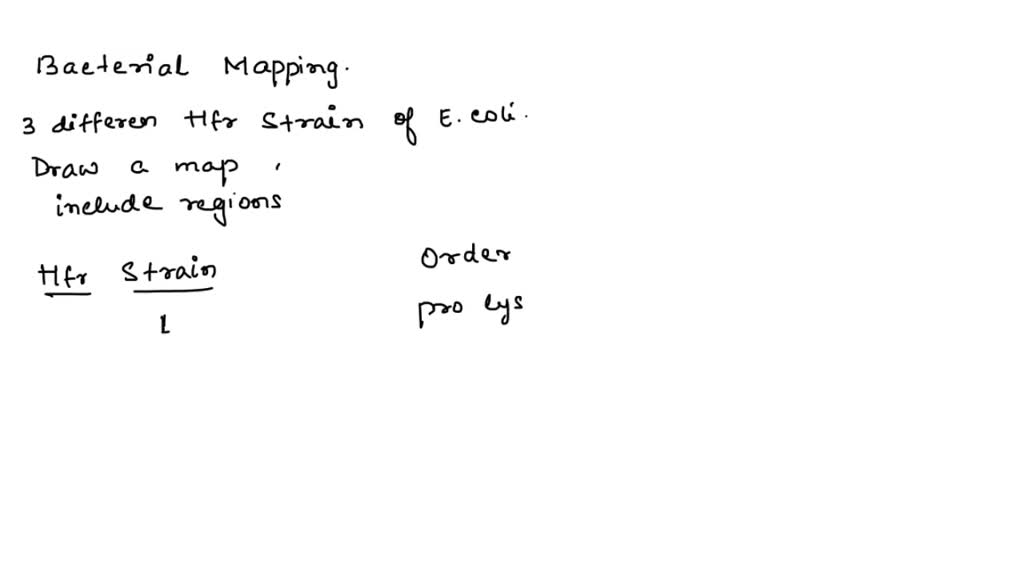 Bacterial Mapping.
3 differen Hfr Strain of E. coli.
Draw a map,
include regions
Hfr Strain Order
1 pro lys